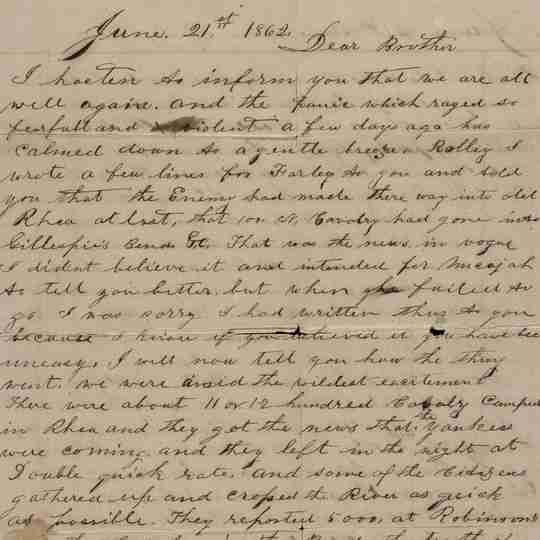 June. 21.st 1862
Dear Brother
I hasten to inform you that we are all
well again. and the panic which raged so
fearfull and violent a few days ago has
calmed down to a gentle breeze. Rolley I
wrote a few lines for Farley to you and told
you that the Enemy had made there way into old
Rhea at last, that 100 Cavalry had gone into
Gillespie's Bend &c. That was the news in vogue
I didnt believe it and intended for Micajah
to tell you better. but when failed to
go I was sorry I had written thus to you
because I know if you believed it you have been
uneasy. I will now tell you how the thing
went. we were amid the wildest excitement
There were about 11 or 12 hundred Cavalry Camped
in Rhea and they got the news that the Yankees
were coming and they left in the night at
Double quick rate. and some of the Citizens
gathered up and crossed the River as quick
as possible. They reported 5000, at Robinson's